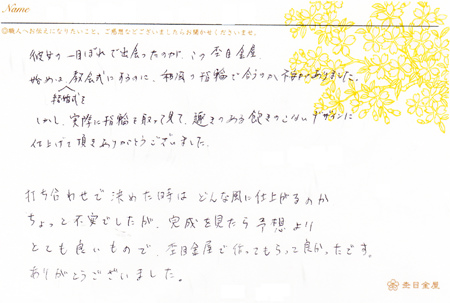 Name
◎職人へお伝えになりたいこと、ご感想などございましたらお聞かせくださいませ。
彼女の一目ぼれで出会ったのが、この杢目金屋。
始めは、教会式にするのに、和風の指輪で合うのか不安がありました。
結婚式を
しかし、実際に指輪を取って見て、趣きのある飽きのこないデザインに
仕上げて頂きありがとうございました。
打ち合わせで決めた時はどんな風に仕上がるのか
ちょっと不安でしたが、完成を見たら予想より
とても良いもので、杢目金屋で作ってもらって良かったです。
ありがとうございました。
杢目金屋